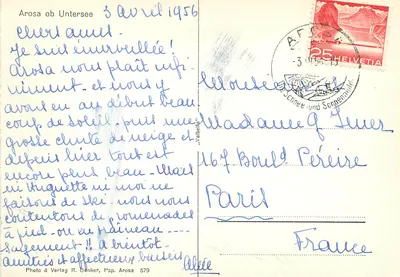 Arosa ob Untersee
3 avril 1956
Chers amis.
Je suis émerveillée!
Arosa nous plaît infi-
niment - et nous y
avons eu au début beau-
coup de soleil - puis une
grosse chute de neige et
depuis hier tout est
encore plus beau - Mais
ni Huguette ni moi ne
faisons de ski - nous nous
contentons de promenades
à pied - ou en traîneau ....
sagement!! A bientôt
amitiés et affectueux baisers
Photo & Verlag R. Danker, Pap. Arosa 579
AROSA
25
HELVETIA
Monsieur
Madame
167 Bould Péreire
Paris
France